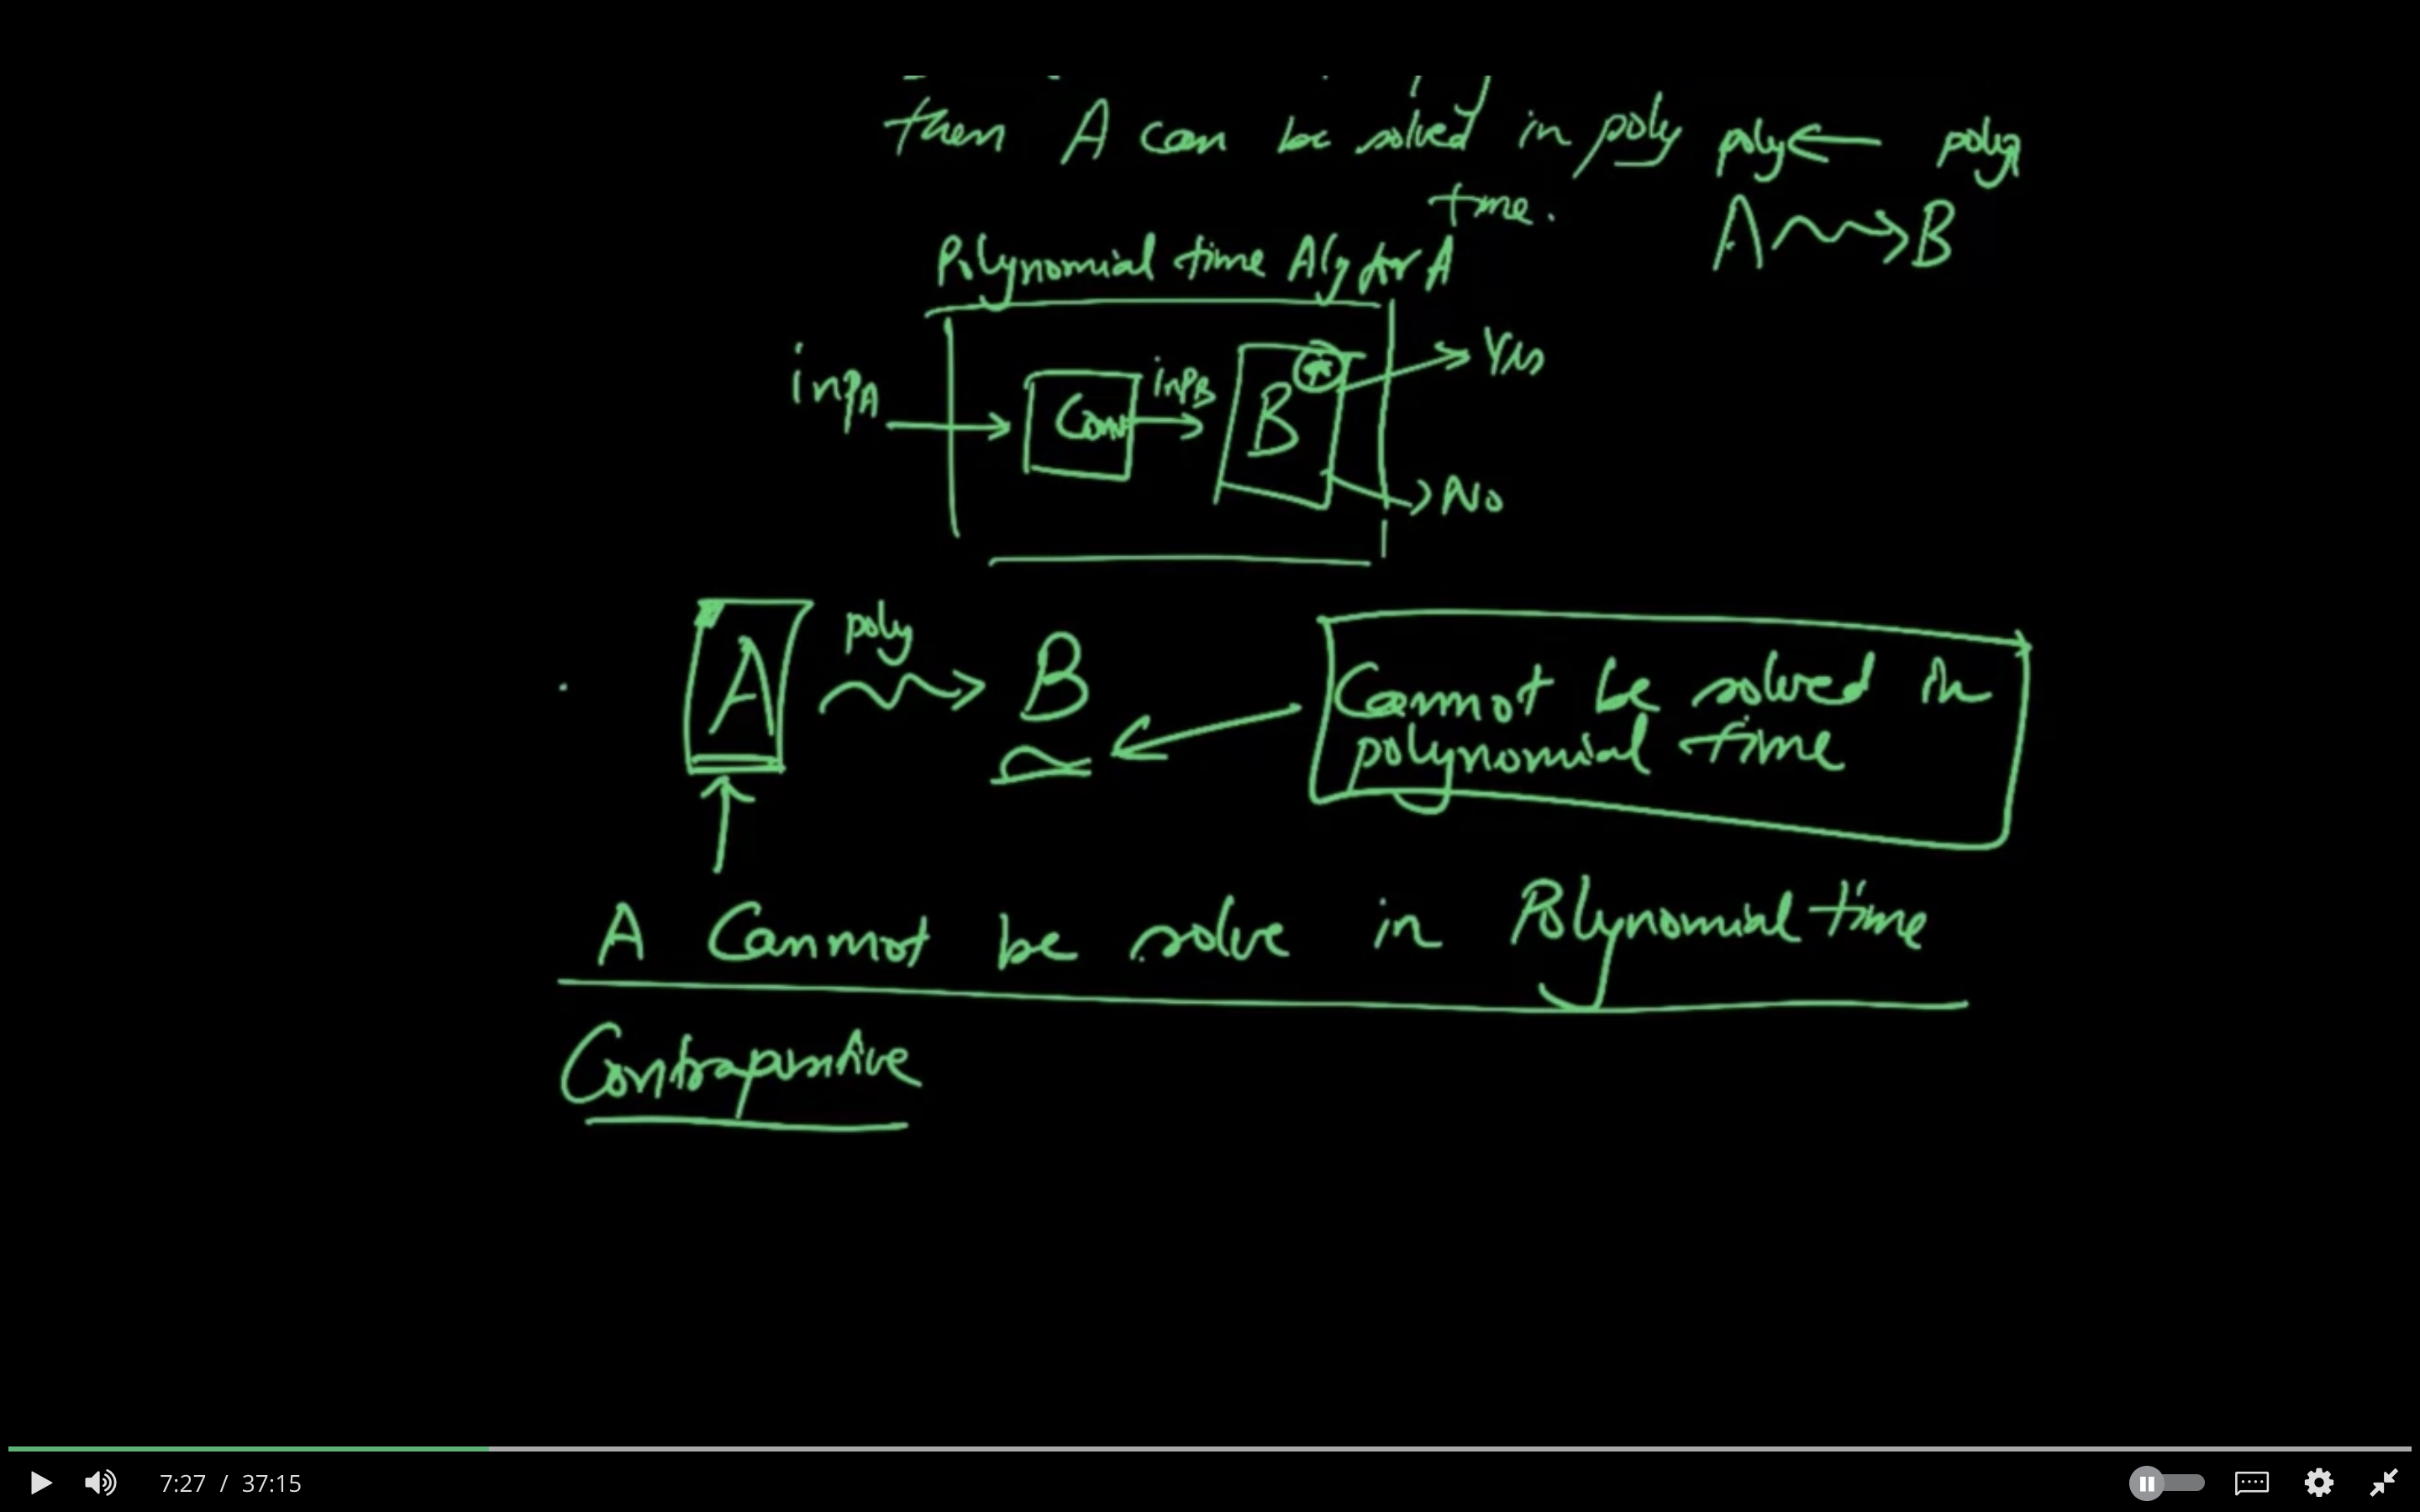 then A can be solved in poly time.
poly ← poly
A ⇝ B
Polynomial time Alg for A
inpA
Conv
inpB
B
*
Yes
No
A
poly
B
Cannot be solved in
polynomial time
A Cannot be solve in Polynomial time
Contrapositive
7:27 / 37:15